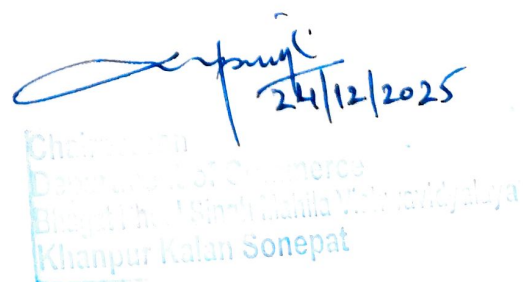 24/12/2025
Chairperson
Department of Commerce
Bhagat Phool Singh Mahila Vishwavidyalaya
Khanpur Kalan Sonepat